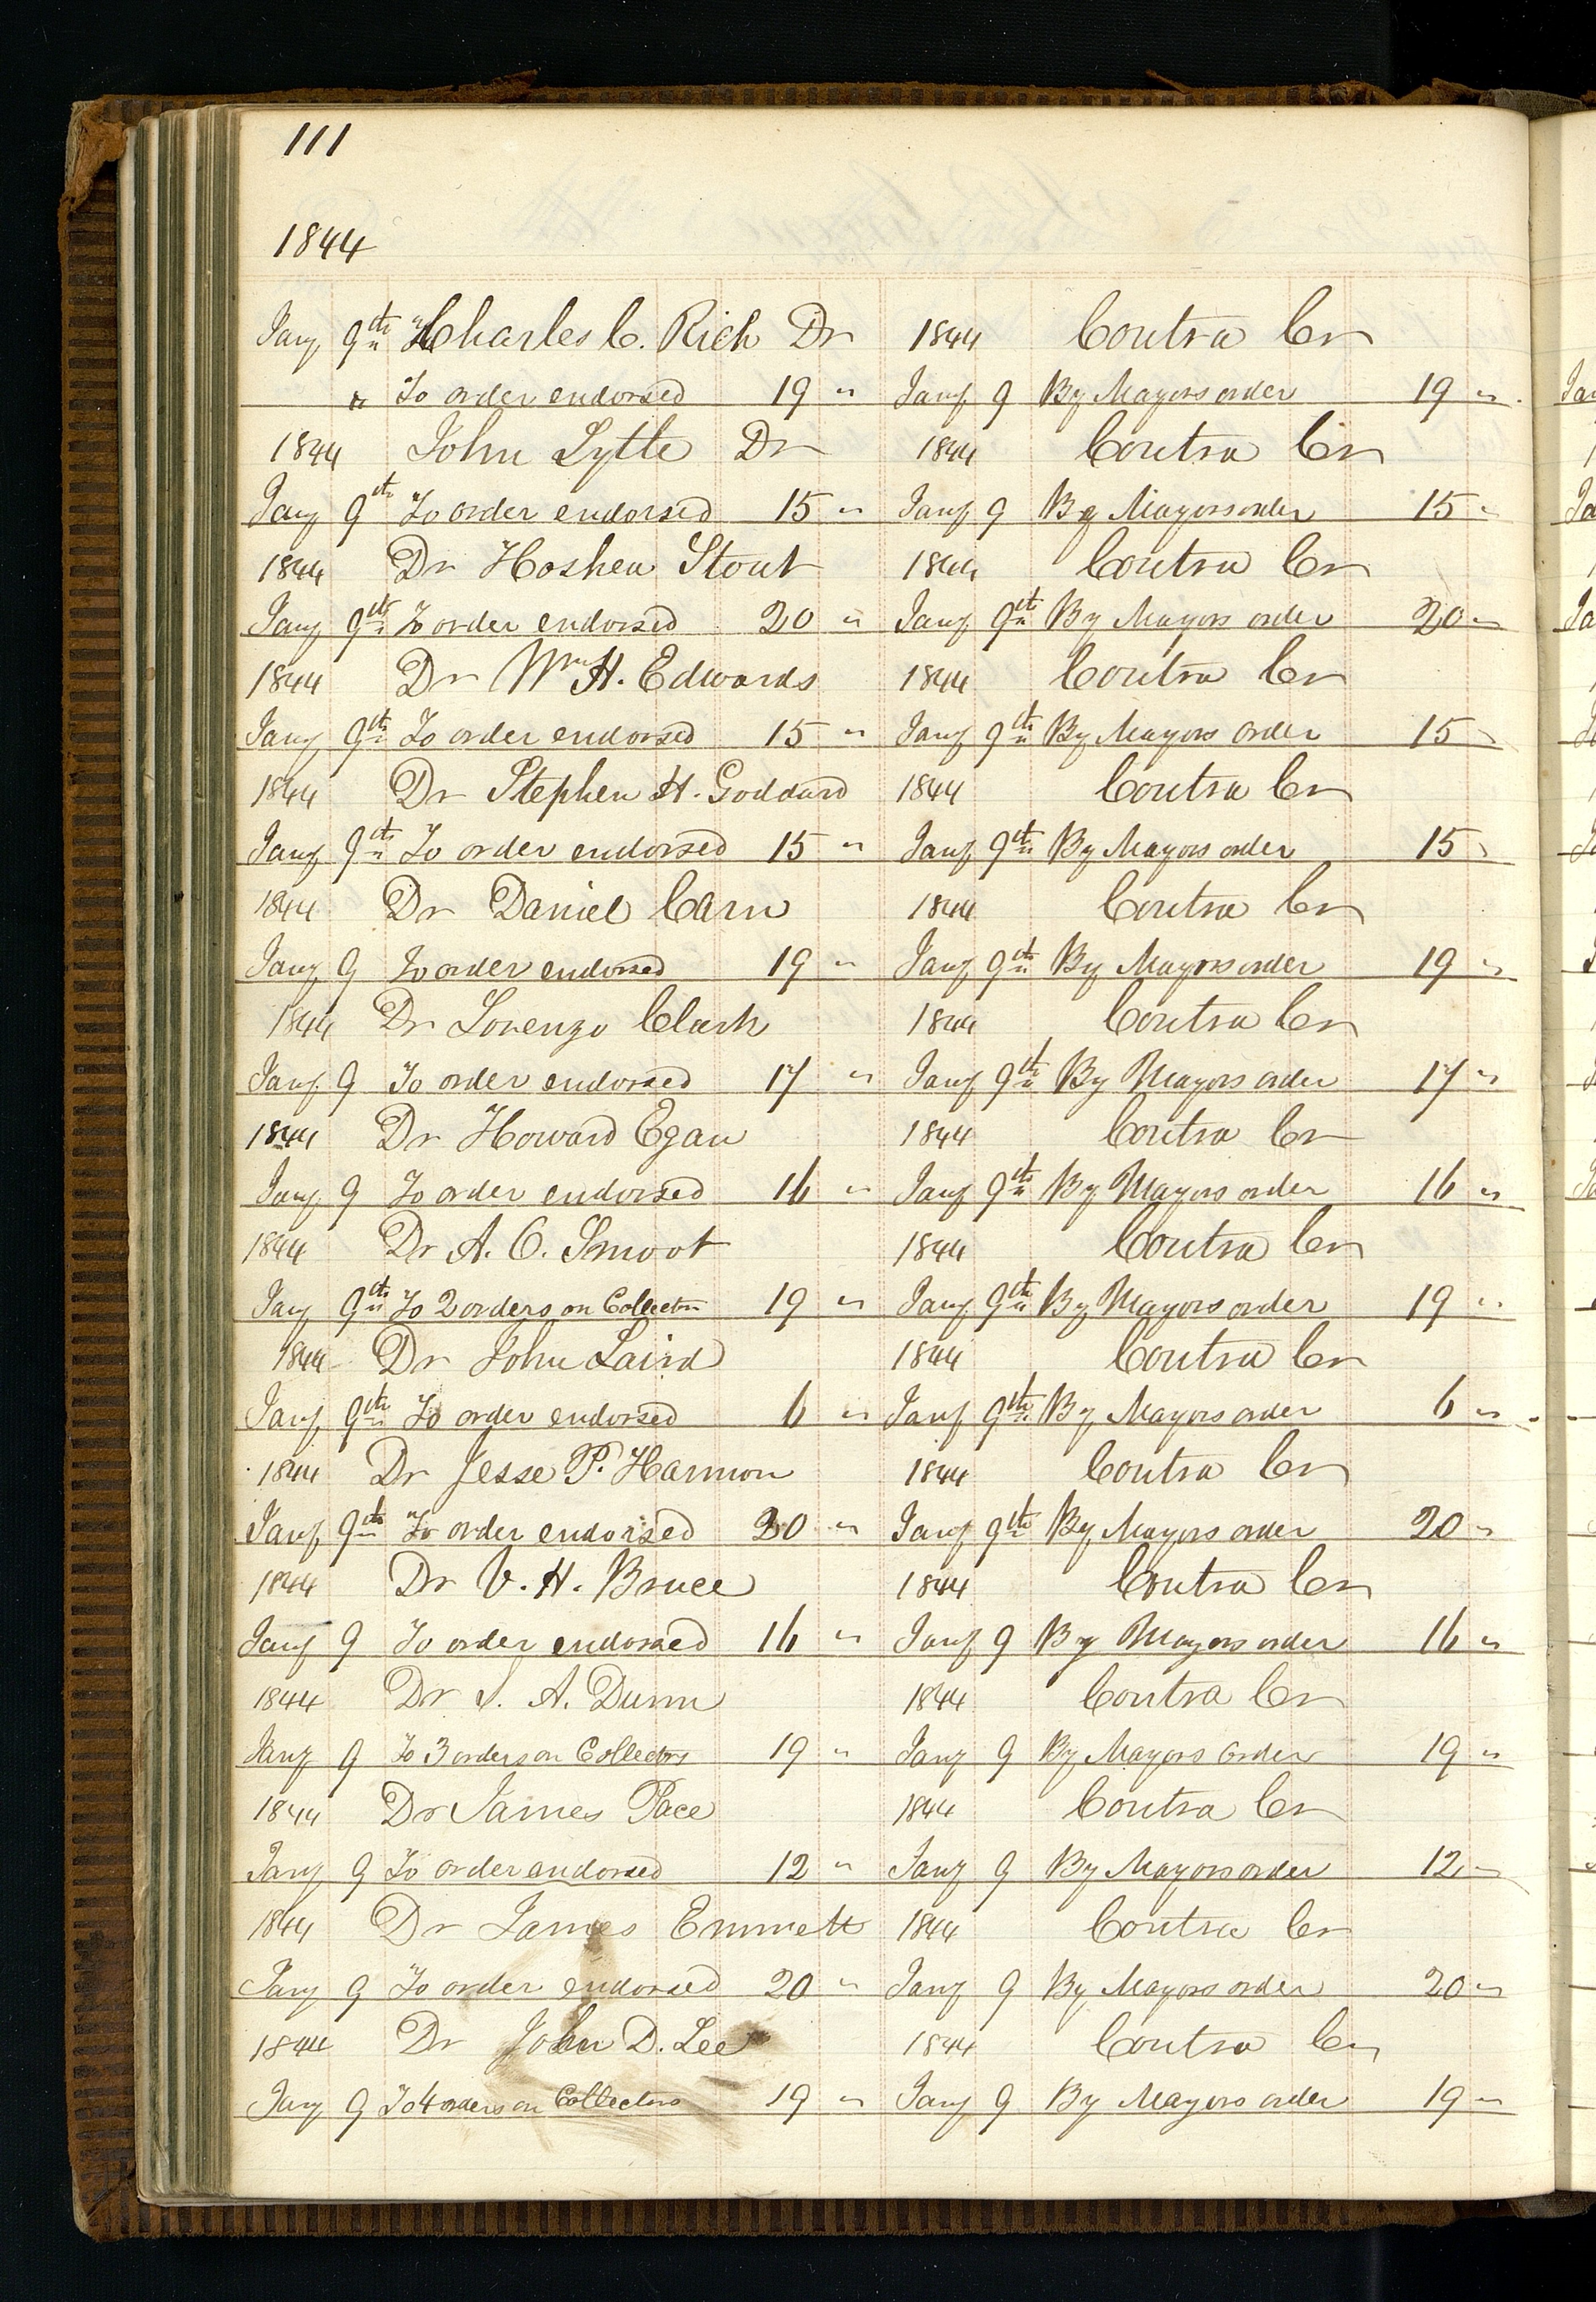 111
1844
Jany 9th Charles C. Rich Dr 1844 Contra Cr
" To order endorsed 19 " Jany 9 By Mayors order 19 "
1844 John Lytle Dr 1844 Contra Cr
Jany 9th To order endorsed 15 " Jany 9 By Mayors order 15 "
1844 Dr Hoshea Stout 1844 Contra Cr
Jany 9th To order endorsed 20 " Jany 9th By Mayors order 20 "
1844 Dr Wm H. Edwards 1844 Contra Cr
Jany 9th To order endorsed 15 " Jany 9th By Mayors order 15 "
1844 Dr Stephen H. Goddard 1844 Contra Cr
Jany 9th To order endorsed 15 " Jany 9th By Mayors order 15 "
1844 Dr Daniel Carn 1844 Contra Cr
Jany 9 To order endorsed 19 " Jany 9th By Mayors order 19 "
1844 Dr Lorenzo Clark 1844 Contra Cr
Jany 9 To order endorsed 17 " Jany 9th By Mayors order 17 "
1844 Dr Howard Egan 1844 Contra Cr
Jany 9 To order endorsed 16 " Jany 9th By Mayors order 16 "
1844 Dr A. O. Smoot 1844 Contra Cr
Jany 9th To 2 orders on Collector 19 " Jany 9th By Mayors order 19 "
1844 Dr John Laird 1844 Contra Cr
Jany 9th To order endorsed 6 " Jany 9th By Mayors order 6 "
1844 Dr Jesse P. Harmon 1844 Contra Cr
Jany 9th To order endorsed 20 " Jany 9th By Mayors order 20 "
1844 Dr V. H. Bruce 1844 Contra Cr
Jany 9 To order endorsed 16 " Jany 9 By Mayors order 16 "
1844 Dr S. A. Dunn 1844 Contra Cr
Jany 9 To 3 orders on Collectors 19 " Jany 9 By Mayors order 19 "
1844 Dr James Pace 1844 Contra Cr
Jany 9 To order endorsed 12 " Jany 9 By Mayors order 12 "
1844 Dr James Emmett 1844 Contra Cr
Jany 9 To order endorsed 20 " Jany 9 By Mayors order 20 "
1844 Dr John D. Lee 1844 Contra Cr
Jany 9 To 4 orders on Collectors 19 " Jany 9 By Mayors order 19 "